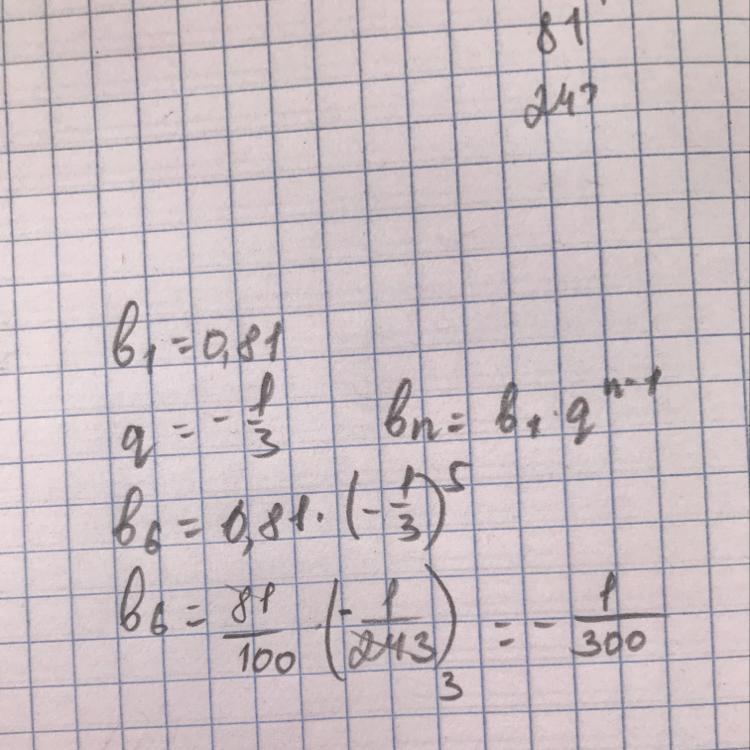 81
243
b₁ = 0,81
q = - 1/3    bn = b₁ · q^(n-1)
b₆ = 0,81 · (- 1/3)^5
b₆ = 81/100 · (- 1/243) 3 = - 1/300